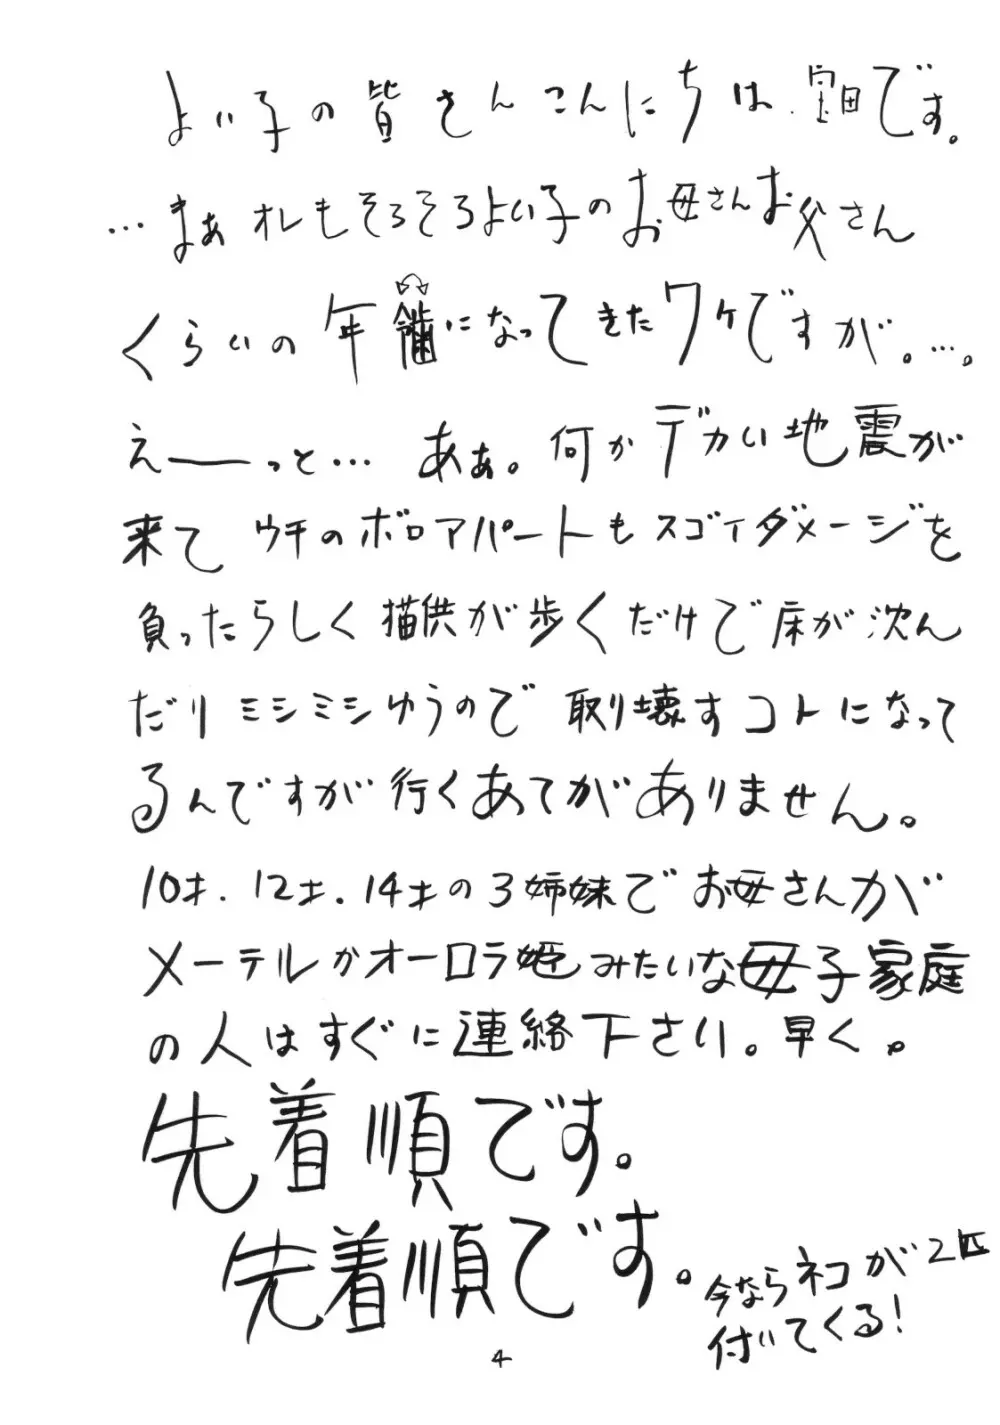 よい子の皆さんこんにちは 室田です。
…まぁオレもそろそろよい子のお母さんお父さん
くらいの年齢になってきたワケですが。…。
えーっと… あぁ。何かデカい地震が
来て ウチのボロアパートもスゴイダメージを
負ったらしく 猫共が歩くだけで床が沈ん
だりミシミシゆうので取り壊すコトになって
るんですが行くあてがありません。
10才．12才．14才の3姉妹でお母さんが
メーテルかオーロラ姫みたいな母子家庭
の人はすぐに連絡下さい。早く。
先着順です。
先着順です。
今ならネコが2匹
付いてくる！
4